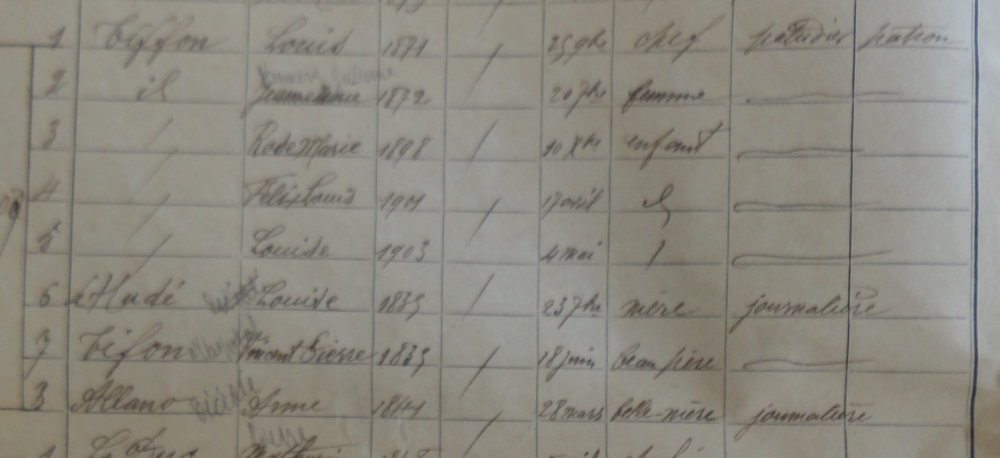 1 Tiffon Louis 1871 / 25 9bre chef paludier patron
2 id Jeanne Marie 1872 20 7bre femme
3 / Rose Marie 1898 / 10 Xbre enfant
4 / Felix Louis 1901 / 17 avril id
5 / Louise 1903 / 4 mai /
6 Louise 1835 / 23 7bre mère journalière
7 Tifon Vincent Pierre 1835 / 18 juin beau père
8 Allano Anne 1844 / 28 mars belle-mère journalière